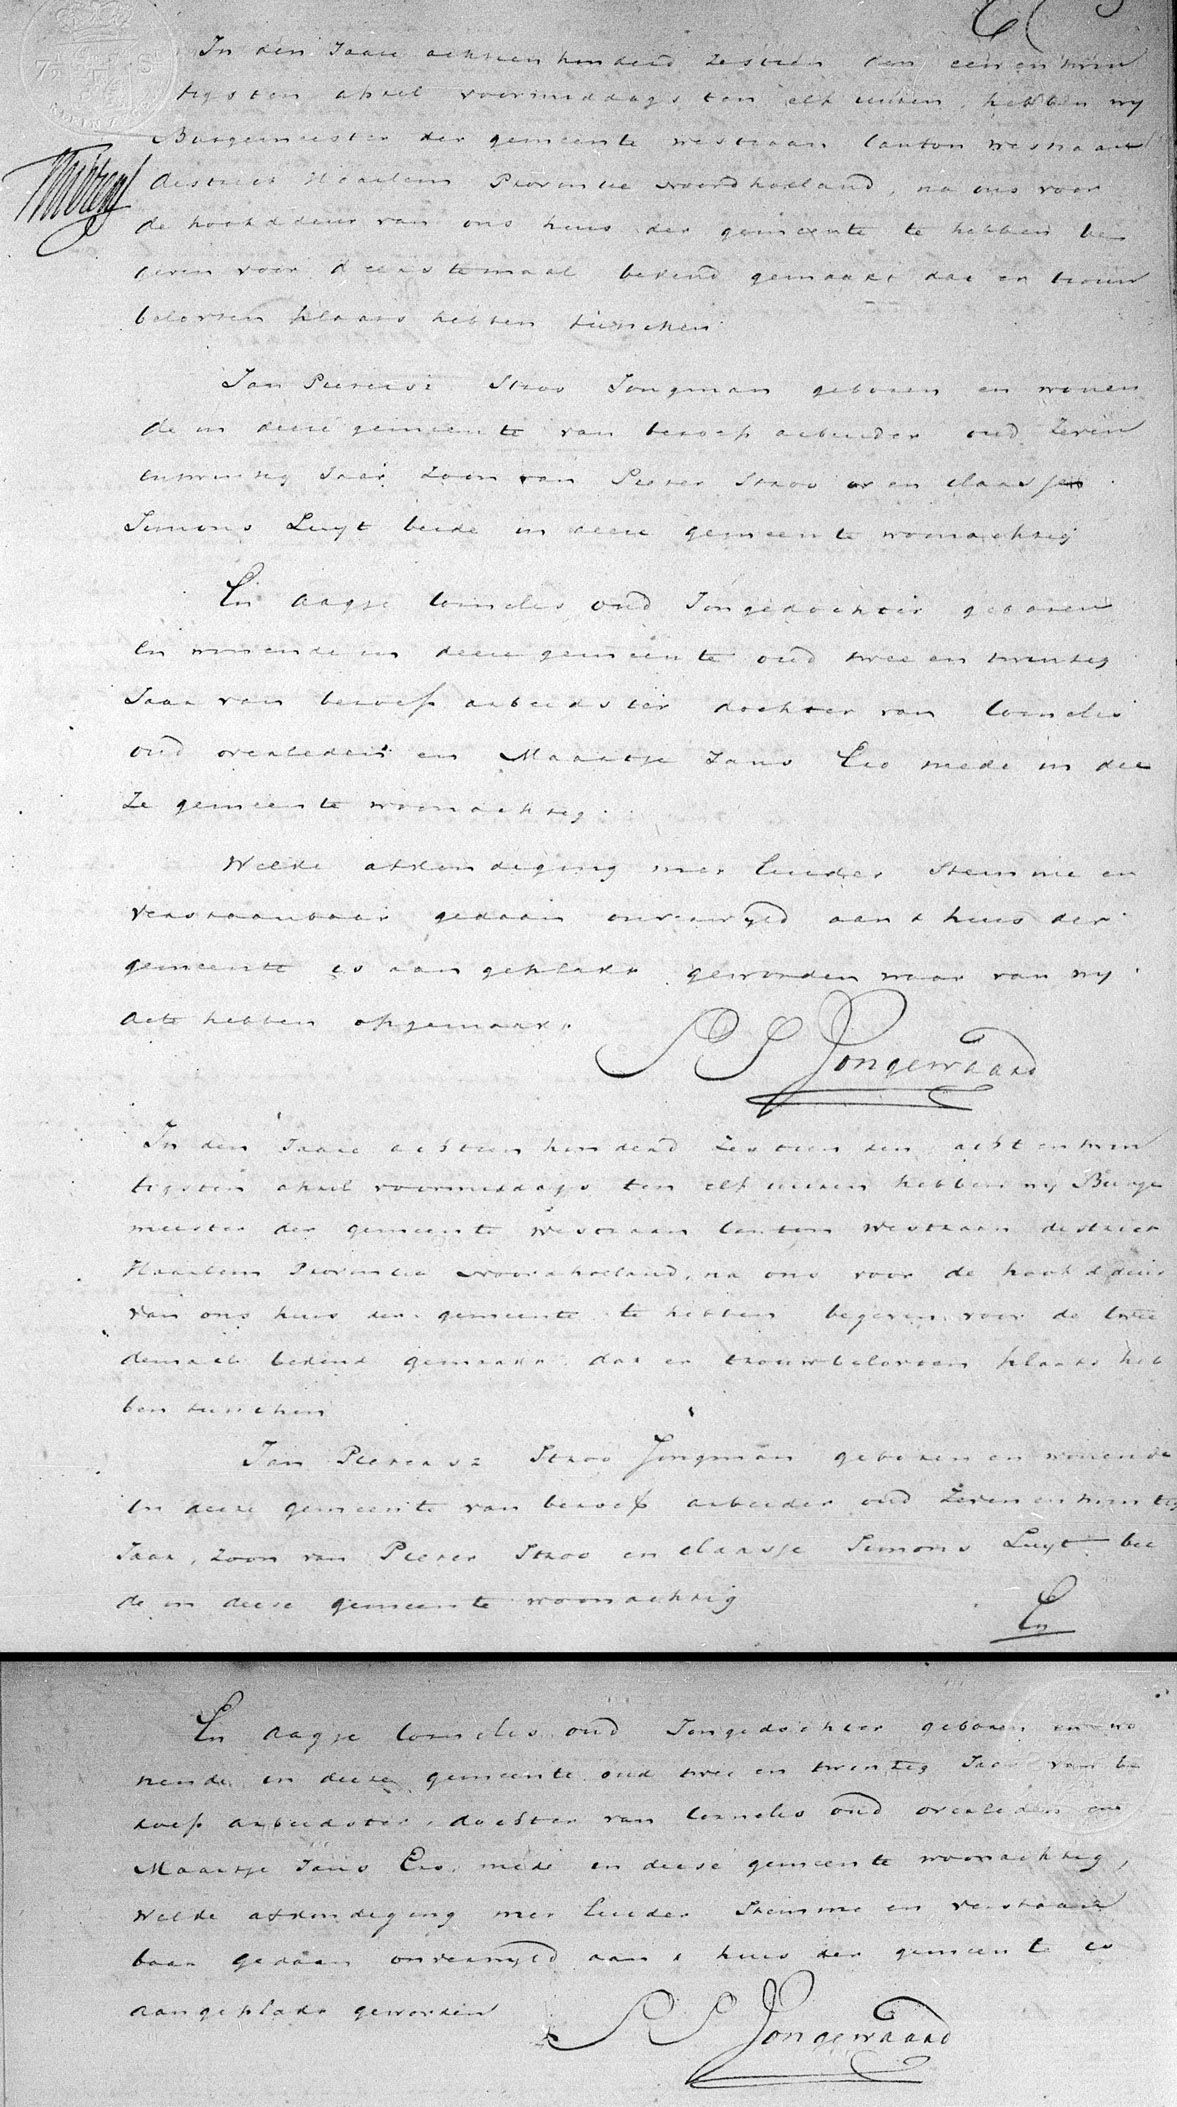 In den Jaare achtien honderd Zestien den een en twin
tigsten april voormiddags ten elf uuren, hebben wy
Burgemeester der gemeente westzaan Canton westzaan
district Haarlem Provintie Noordholland, na ons voor
de hoofddeur van ons huis der gemeente te hebben be
geven voor d eerstemaal bekend gemaakt dat er trouw
beloften plaats hebben tusschen
Jan Pietersz Stroo Jongman geboren en wonen
de in deeze gemeente van beroep arbeider oud Zeven
entwintig Jaar Zoon van Pieter Stroo en Claasje
Simons Luyt beide in deeze gemeente woonachtig
En Aagje Cornelis oud Jongedochter geboren
En wonende in deeze gemeente oud twee en twintig
Jaar van beroep arbeidster dochter van Cornelis
oud overleden en Maartje Jans Cro mede in dee
Ze gemeente woonachtig.
Welke afkondiging met luider Stemme en
verstaanbaar gedaan onverwyld aan t huis der
gemeente is aangeplakt geworden waar van wy
acte hebben opgemaakt.
S S Jongewaard
In den Jaare achtien honderd Zestien den acht en twin
tigsten april voormiddags ten elf uuren hebben wy Burge
meester der gemeente westzaan Canton westzaan district
Haarlem Provintie Noordholland, na ons voor de hoofddeur
van ons huis der gemeente te hebben begeven voor de twee
demaal bekend gemaakt dat er trouwbeloften plaats heb
ben tusschen
Jan Pietersz Stroo Jongman geboren en wonende
in deeze gemeente van beroep arbeider oud Zeven en twintig
Jaar, Zoon van Pieter Stroo en Claasje Simons Luyt bei
de in deese gemeente woonachtig
En
En Aagje Cornelis oud Jongedochter geboren en wo
nende in deeze gemeente oud twee en twintig Jaar van be
roep arbeidster, dochter van Cornelis oud overleden en
Maartje Jans Cro, mede in deese gemeente woonachtig,
Welke afkondiging met luider Stemme en verstaan
baar gedaan onverwyld aan t huis der gemeente is
aangeplakt geworden
S S Jongewaard